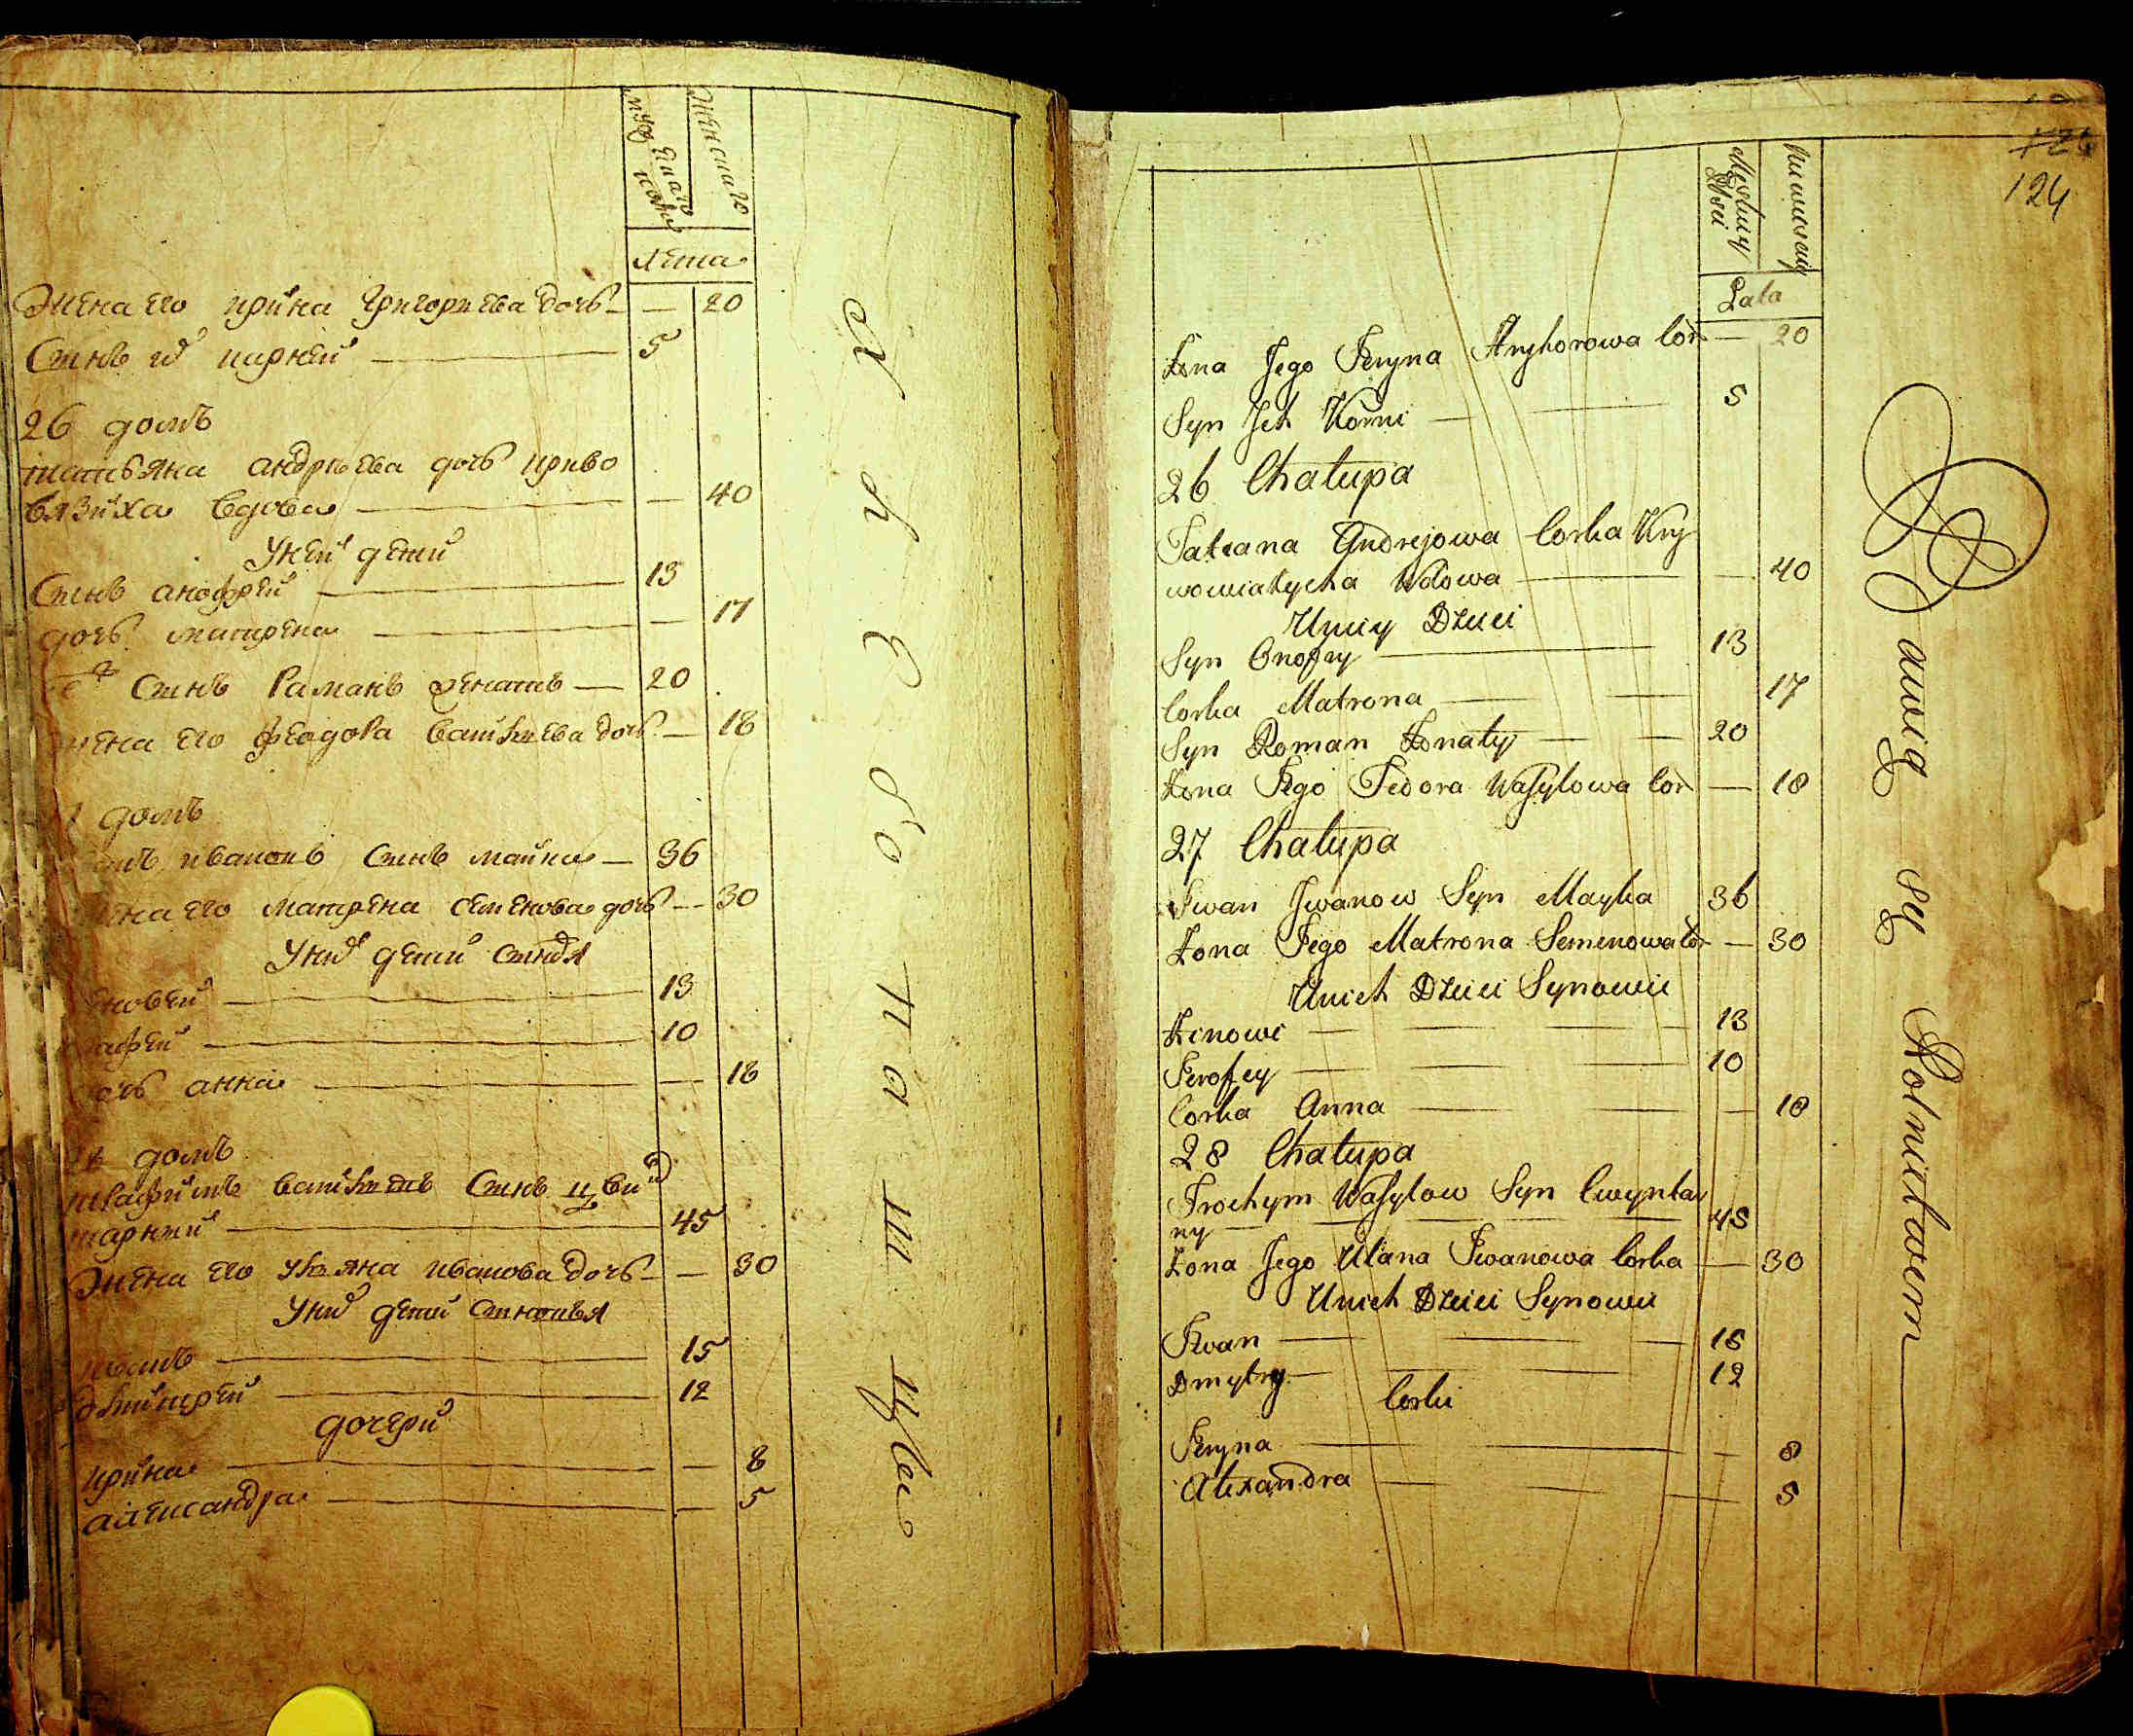 Женского
лета
Жена его ирина григориева дочь — 20
Сынъ их корней — 5
26 домъ
татьяна андреева дочь криво
вязиха вдова — 40
У ней дети
Сынъ анофрей — 13
дочь матрена — 17
Сынъ Раманъ женатъ — 20
жена его феодора василева дочь — 18
домъ
иванъ ивановъ Сынъ майка — 36
жена его матрена семенова дочь — 30
У них дети
13
10
дочь анна — 18
домъ
трафимъ василевъ Сынъ цвин
тарней — 45
Жена его ульяна иванова дочь — 30
У них дети Сыновья
иванъ — 15
дмитрей — 12
дочери
ирина — 8
александра — 5
124
Lata
Żona Jego Jeryna Hryhorowa Cor — 20
Syn Ich Korni — 5
26 Chałupa
Tatiana Andrejowa Corka Kry
wowiazycha Wdowa — 40
U niey Dzieci
Syn Onofry — 13
Corka Matrona — 17
Syn Roman Żonaty — 20
Żona Jego Fedora Wasylowa Cor — 18
27 Chałupa
Iwan Iwanow Syn Mayka 36
Żona Jego Matrona Semenowa Cor — 30
U nich Dzieci Synowie
Zinowi — 13
Jerofey — 10
Corka Anna — 18
28 Chałupa
Trochym Wasylow Syn Cwyntar
ny — 45
Żona Jego Ulana Iwanowa Corka — 30
U nich Dzieci Synowie
Iwan — 15
Dmytry — 12
Corki
Jeryna — 8
Alexandra — 5